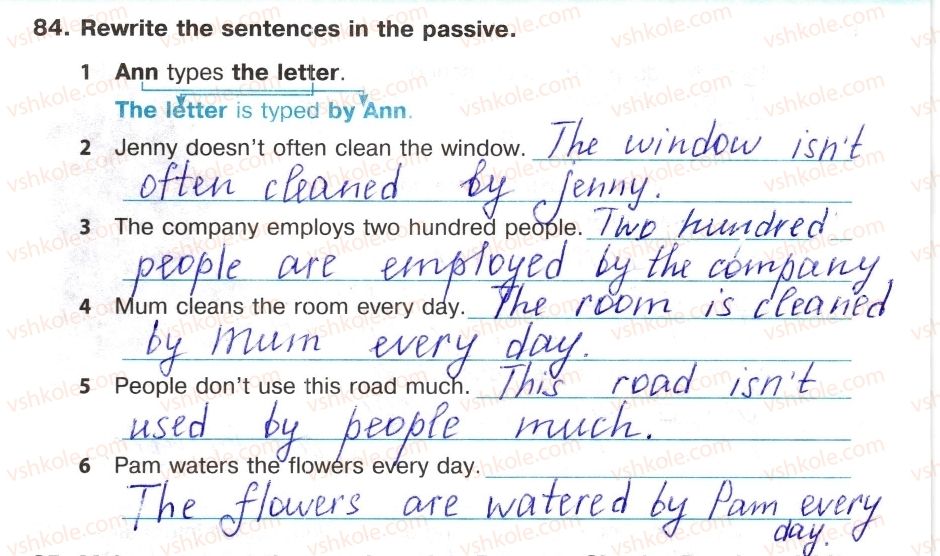 84. Rewrite the sentences in the passive.
1 Ann types the letter.
The letter is typed by Ann.
2 Jenny doesn't often clean the window. The window isn't
often cleaned by Jenny.
3 The company employs two hundred people. Two hundred
people are employed by the company
4 Mum cleans the room every day. The room is cleaned
by Mum every day.
5 People don't use this road much. This road isn't
used by people much.
6 Pam waters the flowers every day.
The flowers are watered by Pam every
day.